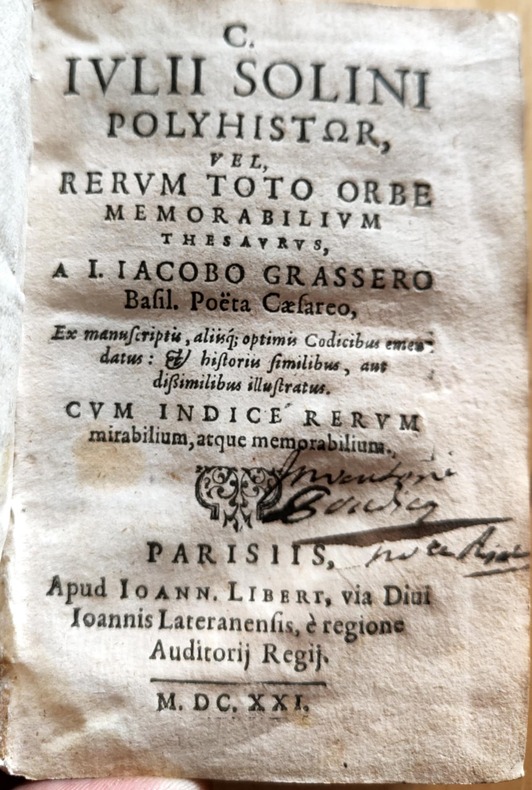 C.
IVLII SOLINI
POLYHISTΩR,
VEL,
RERVM TOTO ORBE
MEMORABILIVM
THESAVRVS,
A I. IACOBO GRASSERO
Basil. Poëta Cæsareo,
Ex manuscriptis, aliisq; optimis Codicibus emen-
datus: & historiis similibus, aut
dissimilibus illustratus.
CVM INDICE RERVM
mirabilium, atque memorabilium.
PARISIIS,
Apud IOANN. LIBERT, via Diui
Ioannis Lateranensis, è regione
Auditorij Regij.
M. DC. XXI.